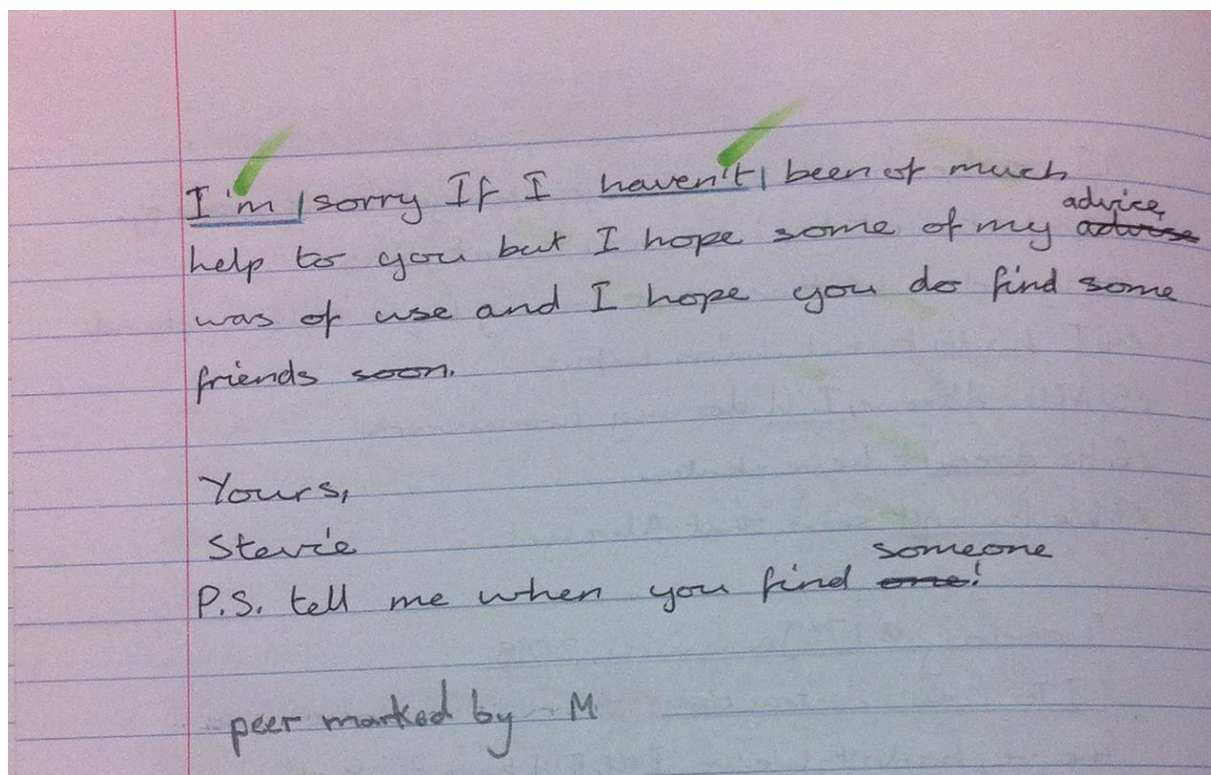 I'm sorry If I haven't been of much
help to you but I hope some of my advise advice
was of use and I hope you do find some
friends soon.
Yours,
Stevie
P.S. tell me when you find one someone!
peer marked by M